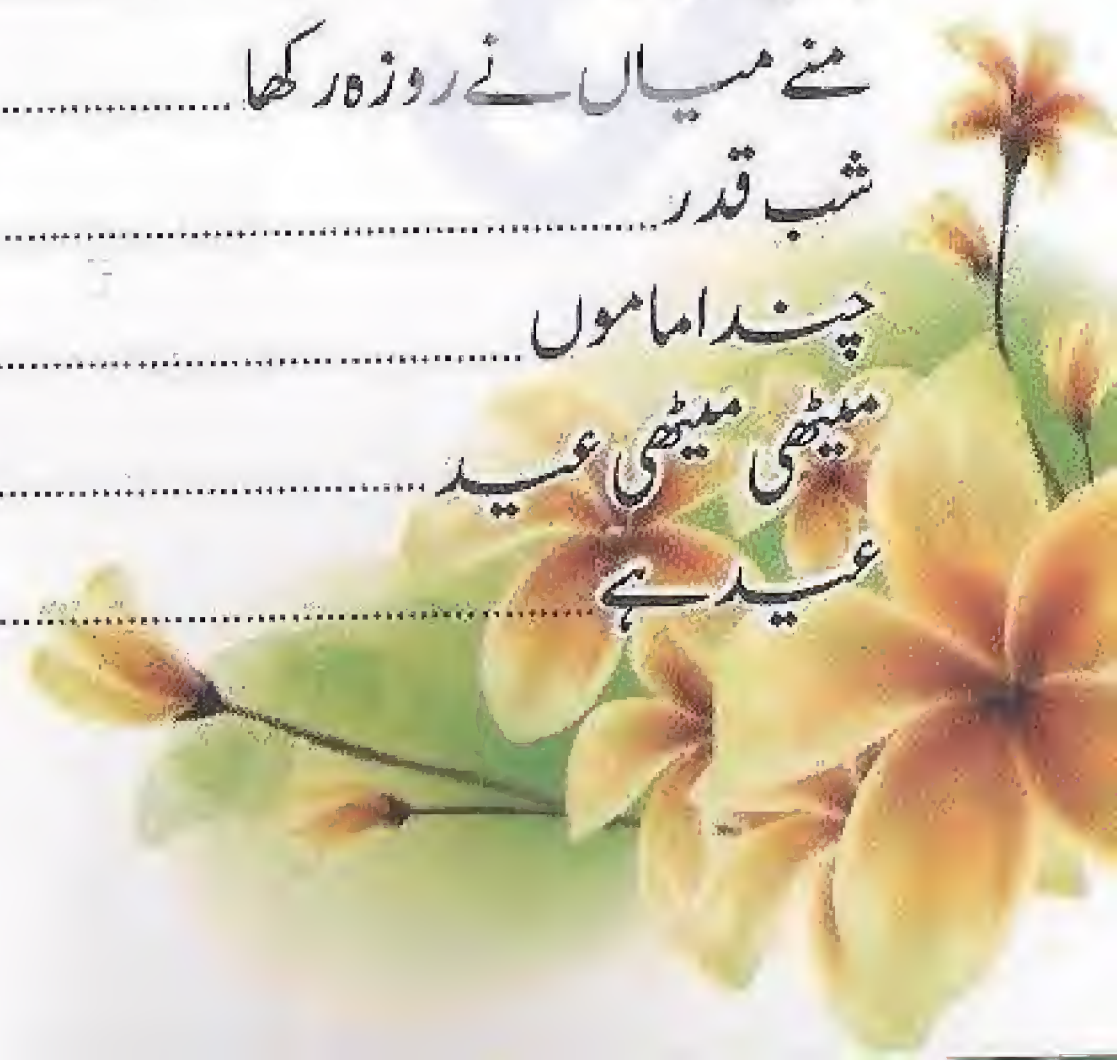 منے میاں نے روزہ رکھا
شب قدر
چندا ماموں
میٹھی میٹھی عید
عید ہے